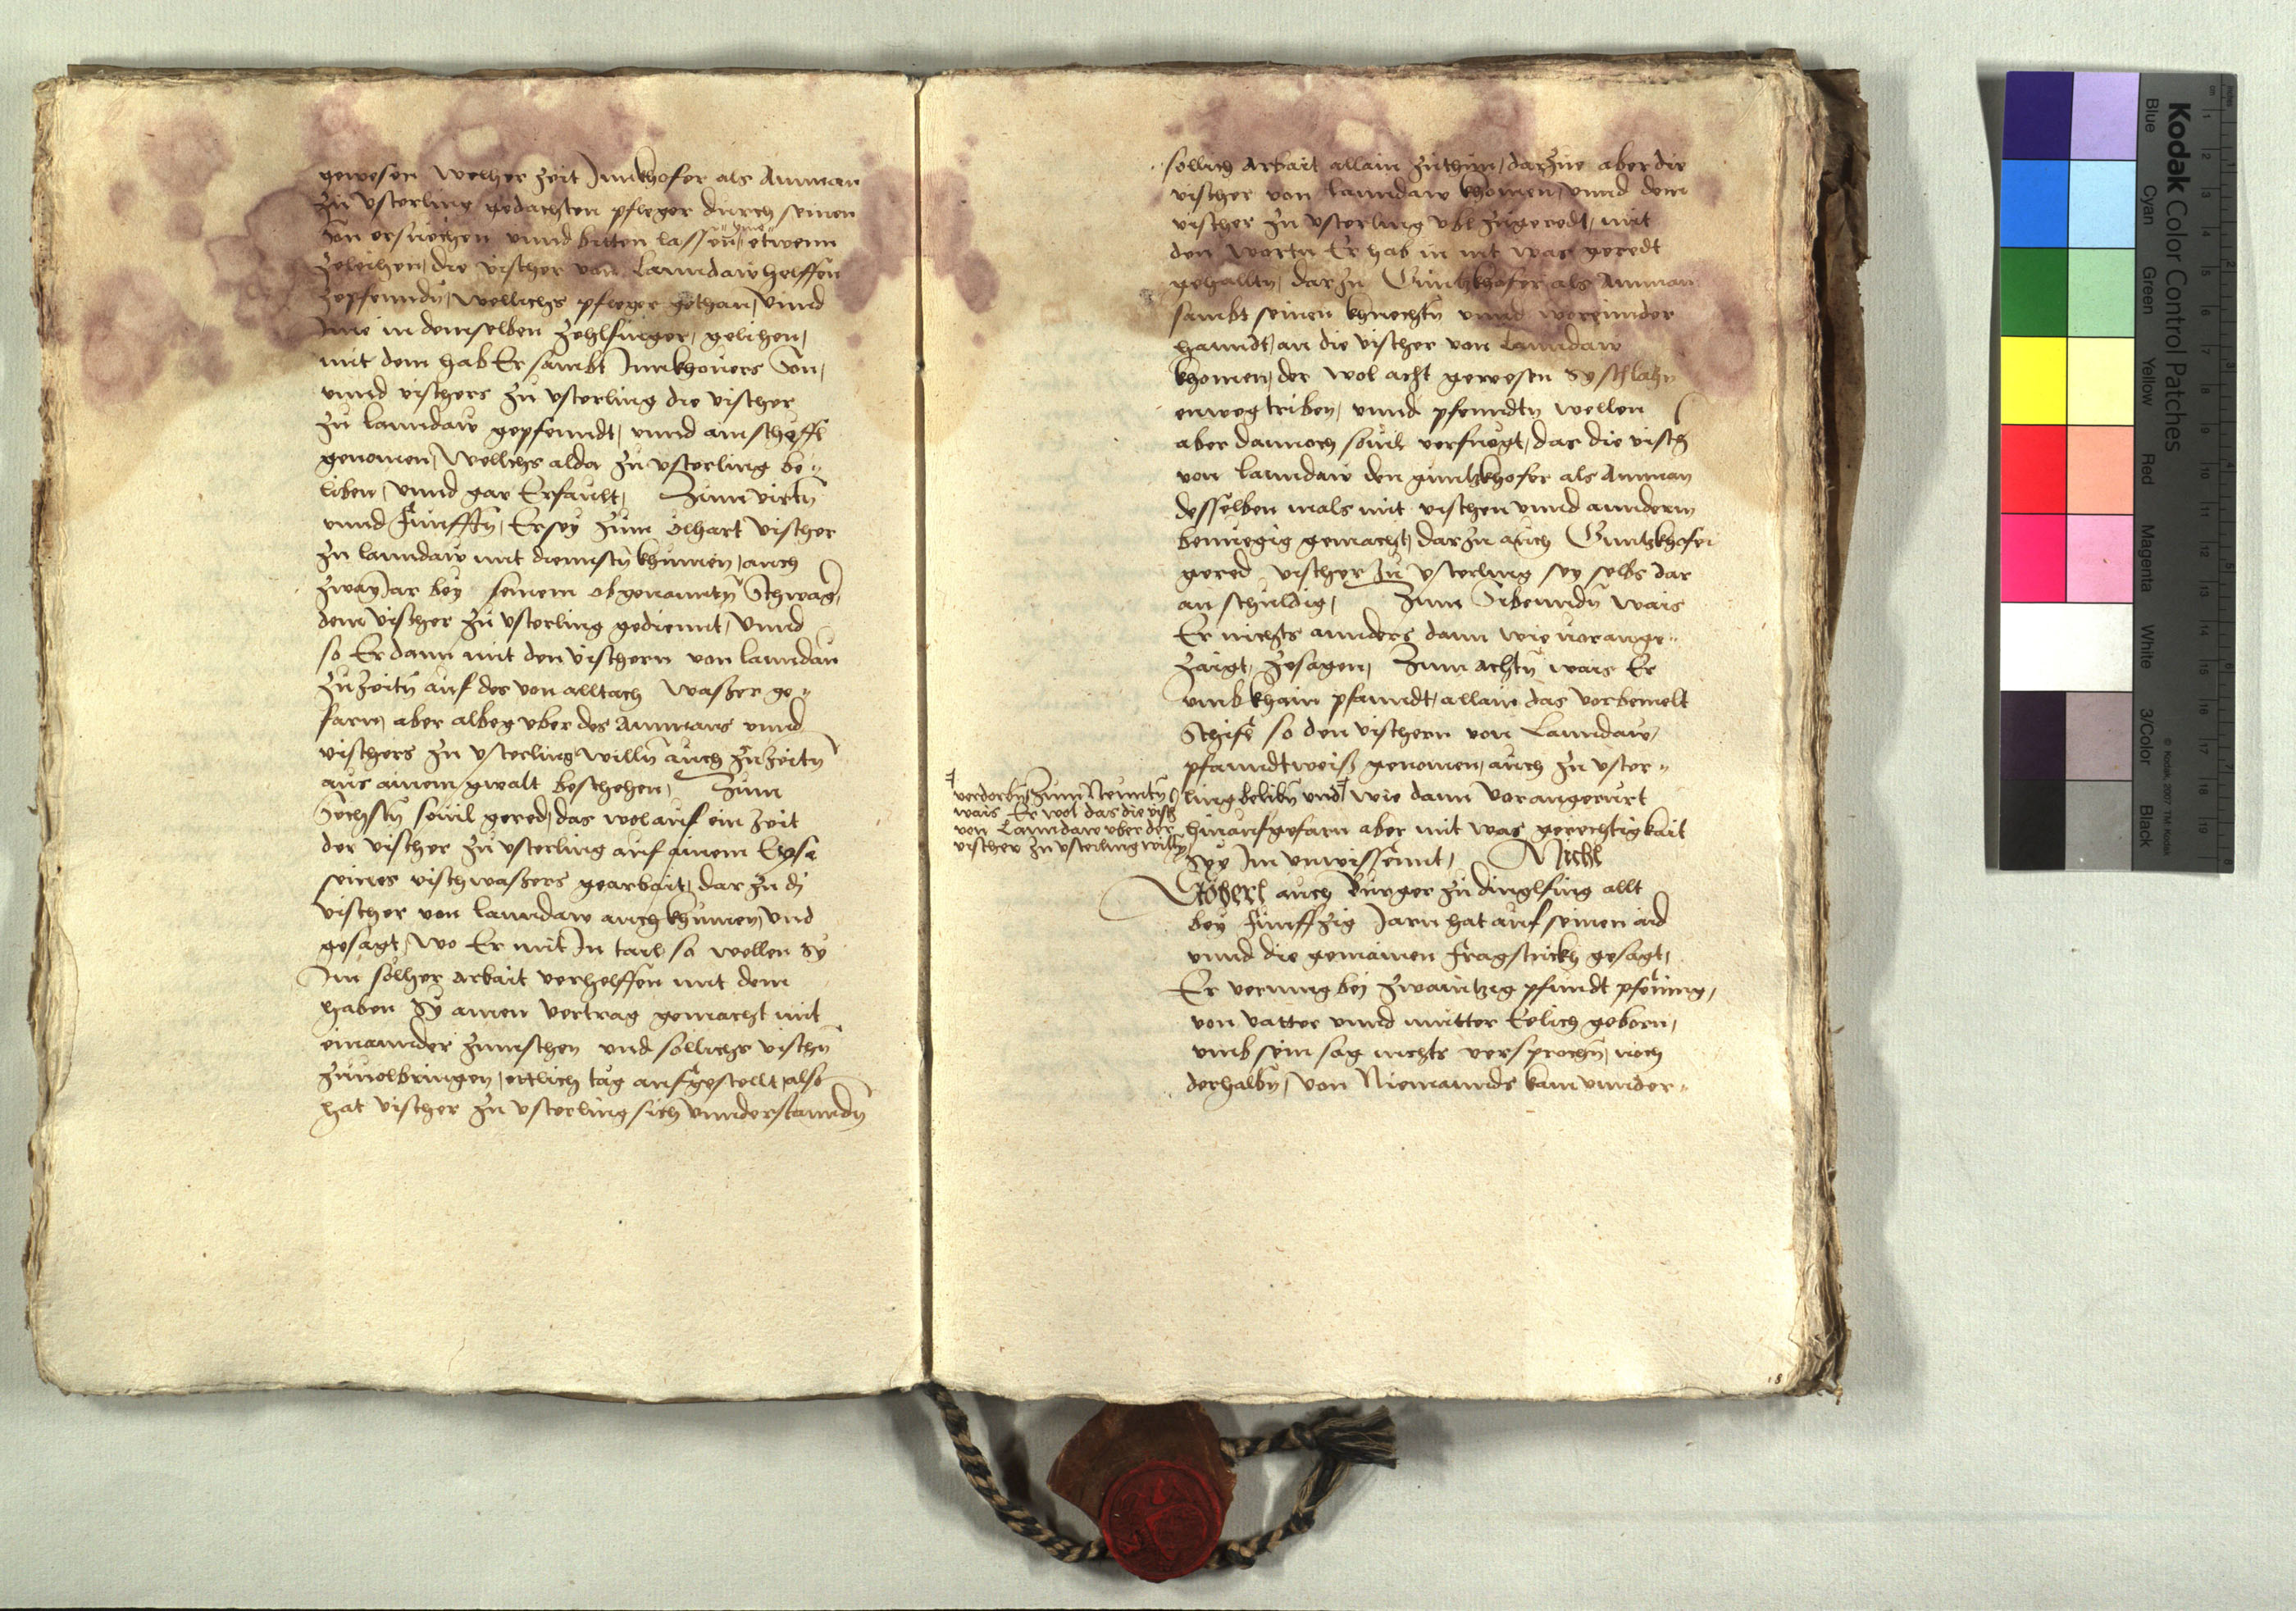 gewesen welher zeit Innkhofer als Amman
zu Usterling gedachten pfleger durch seinen
Son ersuechen unnd bitten lassen, etwenn
zeleihen, die vischer von Lanndaw helffen
zepfenndn, wellichs pfleger gethan, unnd
Ime in demselben gelihen,
mit dem hab Er sambt Innkhovers Son,
unnd vischers zu Usterling die vischer
zu Lanndaw gepfenndt, unnd ain scheffl
genomen, wellichs alda zu Usterling be-
liben, unnd gar Erfault, Zum virtn
unnd Funfftn, Er sey zum vischer
zu lanndaw mit diennstn khumen, auch
zway Jar bey seinem obgenanntn Schwag
dem vischer zu Usterling gediennt, unnd
so Er dann mit den vischern von lanndau
zuzeitn auf des von alltach wasser ge-
farn, aber albeg uber des Ammans unnd
vischers zu Usterling willn auch zuzeitn
aus ainem gwalt beschehen, Zum
Sechstn sovil gered, das wol auf ein zeit
der vischer zu Usterling auf ainem
seines vischwassers gearbait, dar zu di
vischer von lanndaw auch khumen, und
gesagt, wo Er mit In tail so wellen sy
Im solher arbait verhelffen mit dem
haben Sy ainen vertrag gemacht mit
einannder zumschen und sollichs vischn
zuvolbringen, ettlich tag anfgestellt, also
hat vischer zu Usterling sich unnderstanndn
sollich arbait allain zuthun, darzue aber die
vischer von lanndaw khomen, unnd dem
vischer zu Usterling ubl zugeredt, mit
den wortn Er hab in nit was geredt
gehalltn, darzu Guntzkhofer als Amman
sambt seinen khnechtn unnd
hanndt, an die vischer von Lanndaw
khomen, der wol acht gewesen sy schlahn
enweg triben, unnd pfenndtn wellen
aber dannoch sovil verfuegt, das die visch
von lanndaw den guntzkhofer als Amman
desselben mals mit vischen unnd annderm
benuegig gemacht, darzu auch Guntzkhofer
gered vischer zu Usterling sey selbs dar
an schuldig, Zum Sibenndn wais
Er nichts annders dann wie vorange-
zaigt, zesagen, Zum achtn wais Er
umb khain pfanndt, allain das vorbemelt
Schifl so den vischern von Lanndaw,
pfanndtweiß genomen, auch zu Uster-
ling belibn und wie dann vorangerurt
verdorbn, Zum Neuntn
wais Er wol das die visch
von Lanndaw uber der
vischer zu Usterling willn
hinaufgefarn aber mit was gerechtigkait
Sey Im unwissennt, Michl
auch Burger zu dinglfing allt
bey Funffzig Jarn hat auf seinen aid
unnd die gemainen fragstuckh gesagt,
Er vermug bej zwaintzig pfundt pfening,
von vatter unnd mutter Eelich geborn,
umb sein sag nichts versprochn, noch
derhalbn, von Niemannds kain unnder-
18
Kodak Color Control Patches
Blue Cyan Green Yellow Red Magenta White 3/Color Black
© Kodak, 2007 TM: Kodak